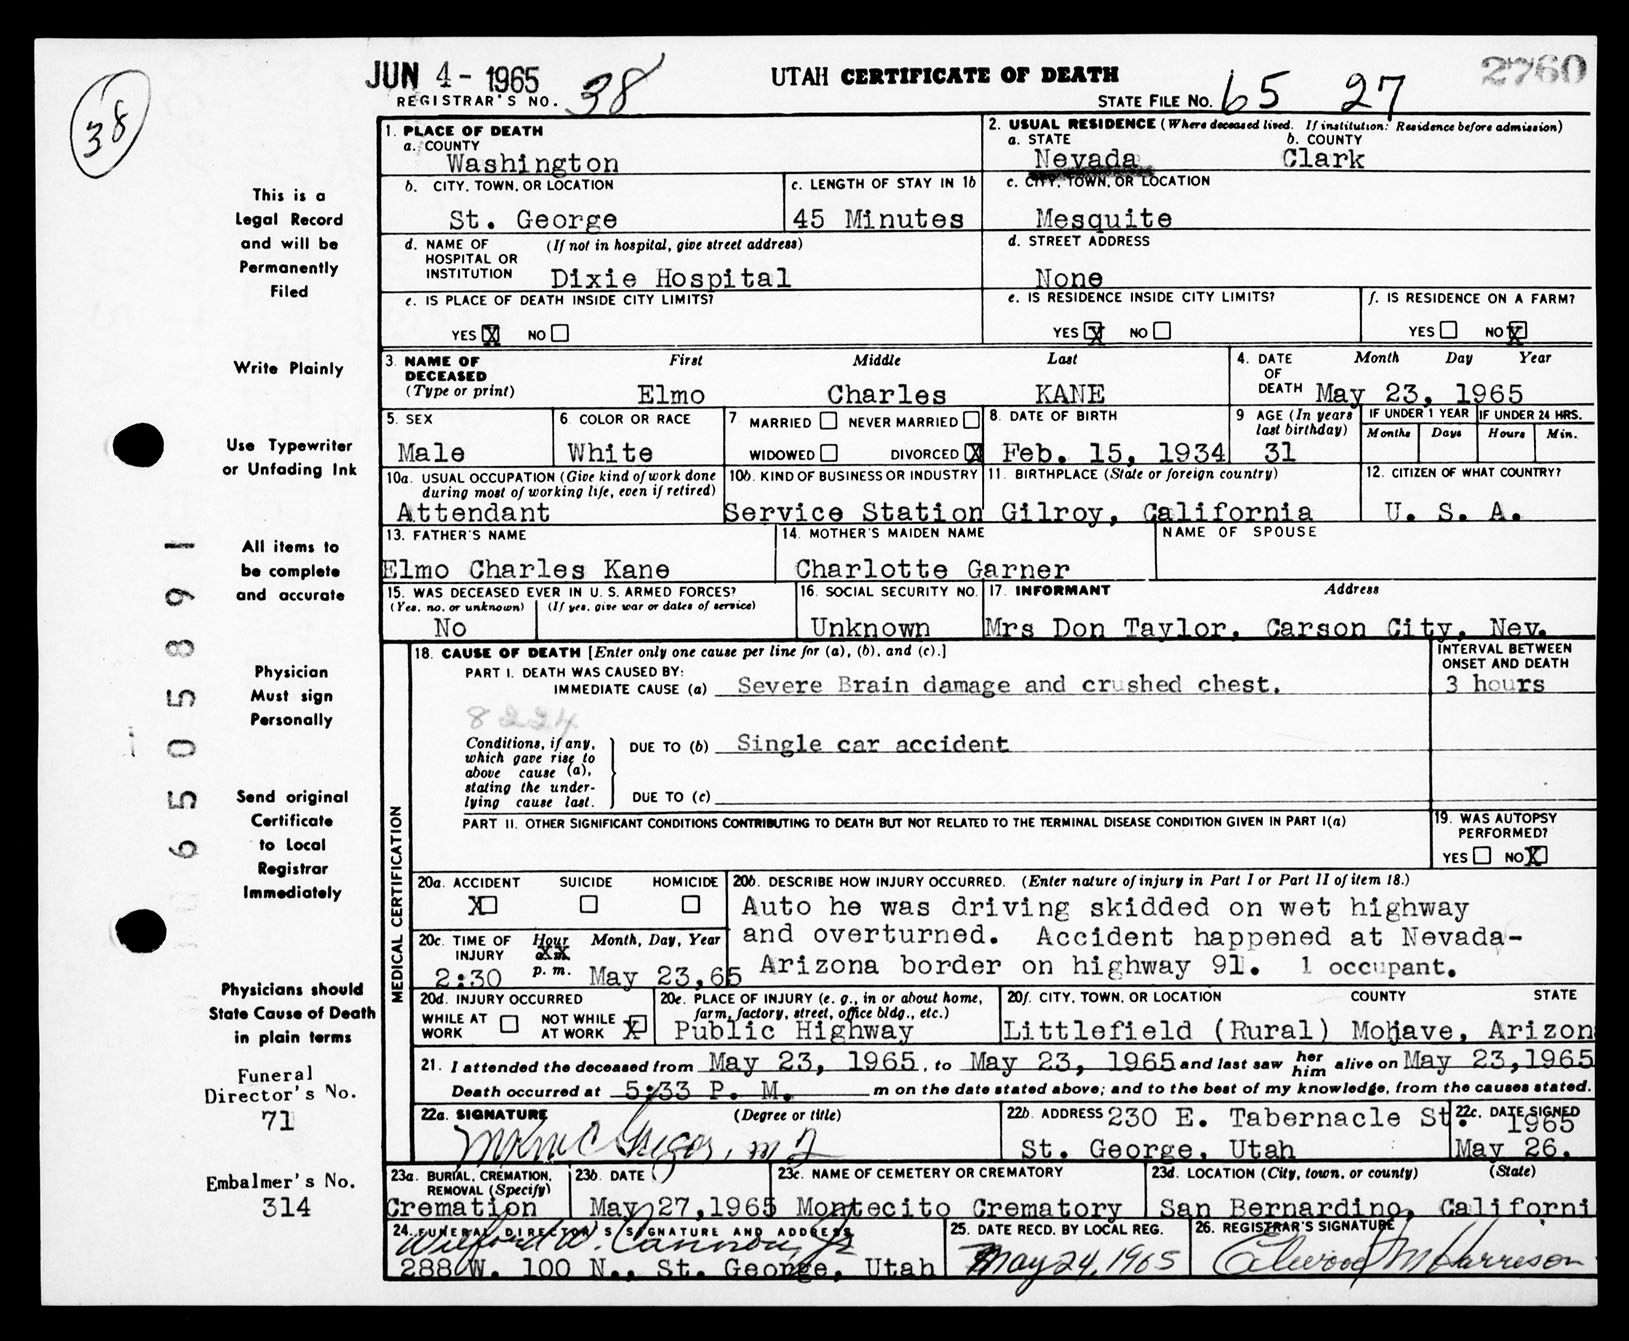 JUN 4 - 1965
REGISTRAR'S NO. 38
UTAH CERTIFICATE OF DEATH
2760
STATE FILE NO. 65 27
38
This is a
Legal Record
and will be
Permanently
Filed
Write Plainly
Use Typewriter
or Unfading Ink
All items to
be complete
and accurate
Physician
Must sign
Personally
Send original
Certificate
to Local
Registrar
Immediately
Physicians should
State Cause of Death
in plain terms
Funeral
Director's No.
71
Embalmer's No.
314
1. PLACE OF DEATH
a. COUNTY
Washington
2. USUAL RESIDENCE (Where deceased lived. If institution: Residence before admission)
a. STATE b. COUNTY
Nevada Clark
b. CITY, TOWN, OR LOCATION
St. George
c. LENGTH OF STAY IN 1b
45 Minutes
c. CITY, TOWN, OR LOCATION
Mesquite
d. NAME OF (If not in hospital, give street address)
HOSPITAL OR
INSTITUTION Dixie Hospital
d. STREET ADDRESS
None
e. IS PLACE OF DEATH INSIDE CITY LIMITS?
YES X NO
e. IS RESIDENCE INSIDE CITY LIMITS?
YES X NO
f. IS RESIDENCE ON A FARM?
YES NO X
3. NAME OF DECEASED (Type or print)
First Middle Last
Elmo Charles KANE
4. DATE OF DEATH
Month Day Year
May 23, 1965
5. SEX
Male
6. COLOR OR RACE
White
7 MARRIED NEVER MARRIED
WIDOWED DIVORCED X
8. DATE OF BIRTH
Feb. 15, 1934
9 AGE (In years last birthday)
31
IF UNDER 1 YEAR
Months Days
IF UNDER 24 HRS.
Hours Min.
10a. USUAL OCCUPATION (Give kind of work done
during most of working life, even if retired)
Attendant
10b. KIND OF BUSINESS OR INDUSTRY
Service Station
11. BIRTHPLACE (State or foreign country)
Gilroy, California
12. CITIZEN OF WHAT COUNTRY?
U. S. A.
13. FATHER'S NAME
Elmo Charles Kane
14. MOTHER'S MAIDEN NAME
Charlotte Garner
NAME OF SPOUSE
15. WAS DECEASED EVER IN U. S. ARMED FORCES?
(Yes, no, or unknown) (If yes, give war or dates of service)
No
16. SOCIAL SECURITY NO.
Unknown
17. INFORMANT Address
Mrs Don Taylor, Carson City, Nev.
MEDICAL CERTIFICATION
18. CAUSE OF DEATH [Enter only one cause per line for (a), (b), and (c).]
INTERVAL BETWEEN
ONSET AND DEATH
PART I. DEATH WAS CAUSED BY:
IMMEDIATE CAUSE (a) Severe Brain damage and crushed chest.
3 hours
8224
Conditions, if any,
which gave rise to
above cause (a),
stating the under-
lying cause last.
DUE TO (b) Single car accident
DUE TO (c)
PART II. OTHER SIGNIFICANT CONDITIONS CONTRIBUTING TO DEATH BUT NOT RELATED TO THE TERMINAL DISEASE CONDITION GIVEN IN PART I(a)
19. WAS AUTOPSY
PERFORMED?
YES NO X
20a. ACCIDENT SUICIDE HOMICIDE
X
20b. DESCRIBE HOW INJURY OCCURRED. (Enter nature of injury in Part I or Part II of item 18.)
Auto he was driving skidded on wet highway
and overturned. Accident happened at Nevada-
Arizona border on highway 91. 1 occupant.
20c. TIME OF INJURY Hour Month, Day, Year
2:30 p. m. May 23,65
20d. INJURY OCCURRED
WHILE AT WORK NOT WHILE AT WORK X
20e. PLACE OF INJURY (e. g., in or about home,
farm, factory, street, office bldg., etc.)
Public Highway
20f. CITY, TOWN, OR LOCATION COUNTY STATE
Littlefield (Rural) Mohave, Arizon
21. I attended the deceased from May 23, 1965, to May 23, 1965 and last saw her him alive on May 23,1965
Death occurred at 5:33 P. M. m on the date stated above; and to the best of my knowledge, from the causes stated.
22a. SIGNATURE (Degree or title)
22b. ADDRESS 230 E. Tabernacle St.
St. George, Utah
22c. DATE SIGNED
1965
May 26,
23a. BURIAL, CREMATION,
REMOVAL (Specify)
Cremation
23b. DATE
May 27,1965
23c. NAME OF CEMETERY OR CREMATORY
Montecito Crematory
23d. LOCATION (City, town, or county) (State)
San Bernardino, Californi
24. FUNERAL DIRECTOR'S SIGNATURE AND ADDRESS
Wilford W. Cannon Jr
288 W. 100 N., St. George, Utah
25. DATE RECD. BY LOCAL REG.
May 24, 1965
26. REGISTRAR'S SIGNATURE
Elwood M Harrison
6 5 0 5 8 9 1